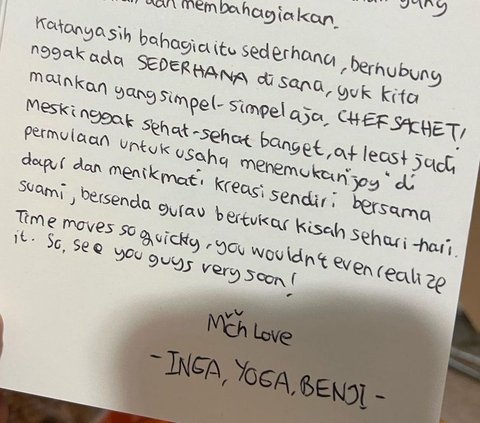 dan membahagiakan.
Katanya sih bahagia itu sederhana, berhubung
nggak ada SEDERHANA di sana, yuk kita
mainkan yang simpel-simpel aja, CHEF SACHET!
Meski nggak sehat-sehat banget, at least jadi
permulaan untuk usaha menemukan "joy" di
dapur dan menikmati kreasi sendiri bersama
suami, bersenda gurau bertukar kisah sehari-hari.
Time moves so quicky, you wouldn't even realize
it. So, see you guys very soon!
Mch Love
- INGA, YOGA, BENJI -